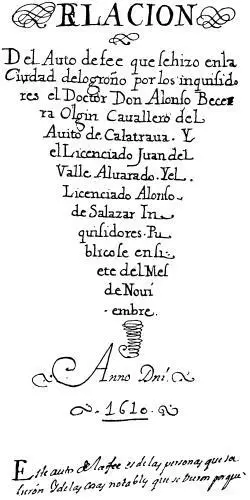 RELACION
Del Auto defee que sehizo enla
Ciudad delogroño por los inquisido
res el Doctor Don Alonso Bece
ra Olgin Cauallero del
Auito de Calatraua. Y
el Licenciado Juan del
Valle Aluarado. Yel
Licenciado Alonso
de Salazar In
quisidores. Pu
blicose en si
ete del Mes
de Noui
embre.
Anno Dni.
1610.
Este auto dlafee es delas personas que sa
lieron Ydelas cosas notables que se dixeron porque